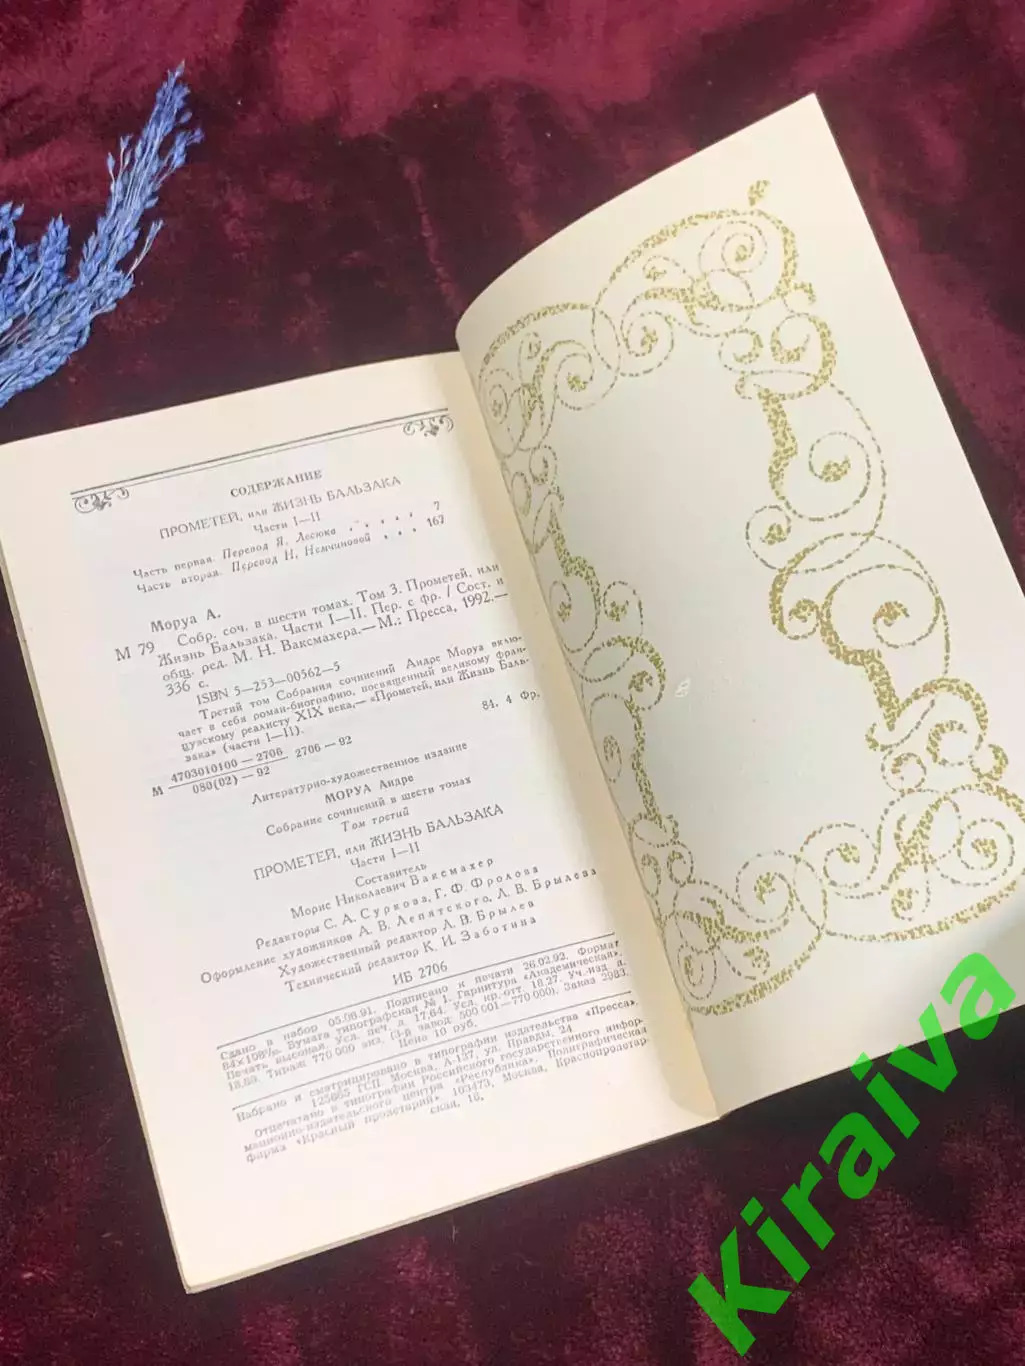 СОДЕРЖАНИЕ
ПРОМЕТЕЙ, или ЖИЗНЬ БАЛЬЗАКА
Части I—II
Часть первая. Перевод Я. Лесюка . . . . . 7
Часть вторая. Перевод Н. Немчиновой . . . 167
Моруа А.
М 79 Собр. соч. в шести томах. Том 3. Прометей, или
Жизнь Бальзака. Части I—II. Пер. с фр. / Сост. и
общ. ред. М. Н. Ваксмахера.— М.: Пресса, 1992.—
336 с.
ISBN 5—253—00562—5
Третий том Собрания сочинений Андре Моруа вклю-
чает в себя роман-биографию, посвященный великому фран-
цузскому реалисту XIX века,— «Прометей, или Жизнь Баль-
зака» (части I—II).
М 4703010100—2706 2706—92
080(02)—92
84. 4 Фр,
Литературно-художественное издание
МОРУА Андре
Собрание сочинений в шести томах
Том третий
ПРОМЕТЕЙ, или ЖИЗНЬ БАЛЬЗАКА
Части I—II
Составитель
Морис Николаевич Ваксмахер
Редакторы С. А. Суркова, Г. Ф. Фролова
Оформление художников А. В. Лепятского, Л. В. Брылева
Художественный редактор Л. В. Брылев
Технический редактор К. И. Заботина
ИБ 2706
Сдано в набор 05.08.91. Подписано к печати 26.02.92. Формат
84×108¹/₃₂. Бумага типографская № 1. Гарнитура «Академическая».
Печать высокая. Усл. печ. л. 17,64. Усл. кр.-отт. 18,27. Уч.-изд. л.
18,89. Тираж 770 000 экз. (3-й завод: 500 001—770 000). Заказ 2983.
Цена 10 руб.
Набрано и сматрицировано в типографии издательства «Пресса»,
125865 ГСП Москва, А-137, ул. Правды, 24
Отпечатано в типографии Российского государственного инфор-
мационно-издательского центра «Республика». Полиграфическая
фирма «Красный пролетарий» 103473, Москва, Краснопролетар-
ская, 16,
Kiraiva